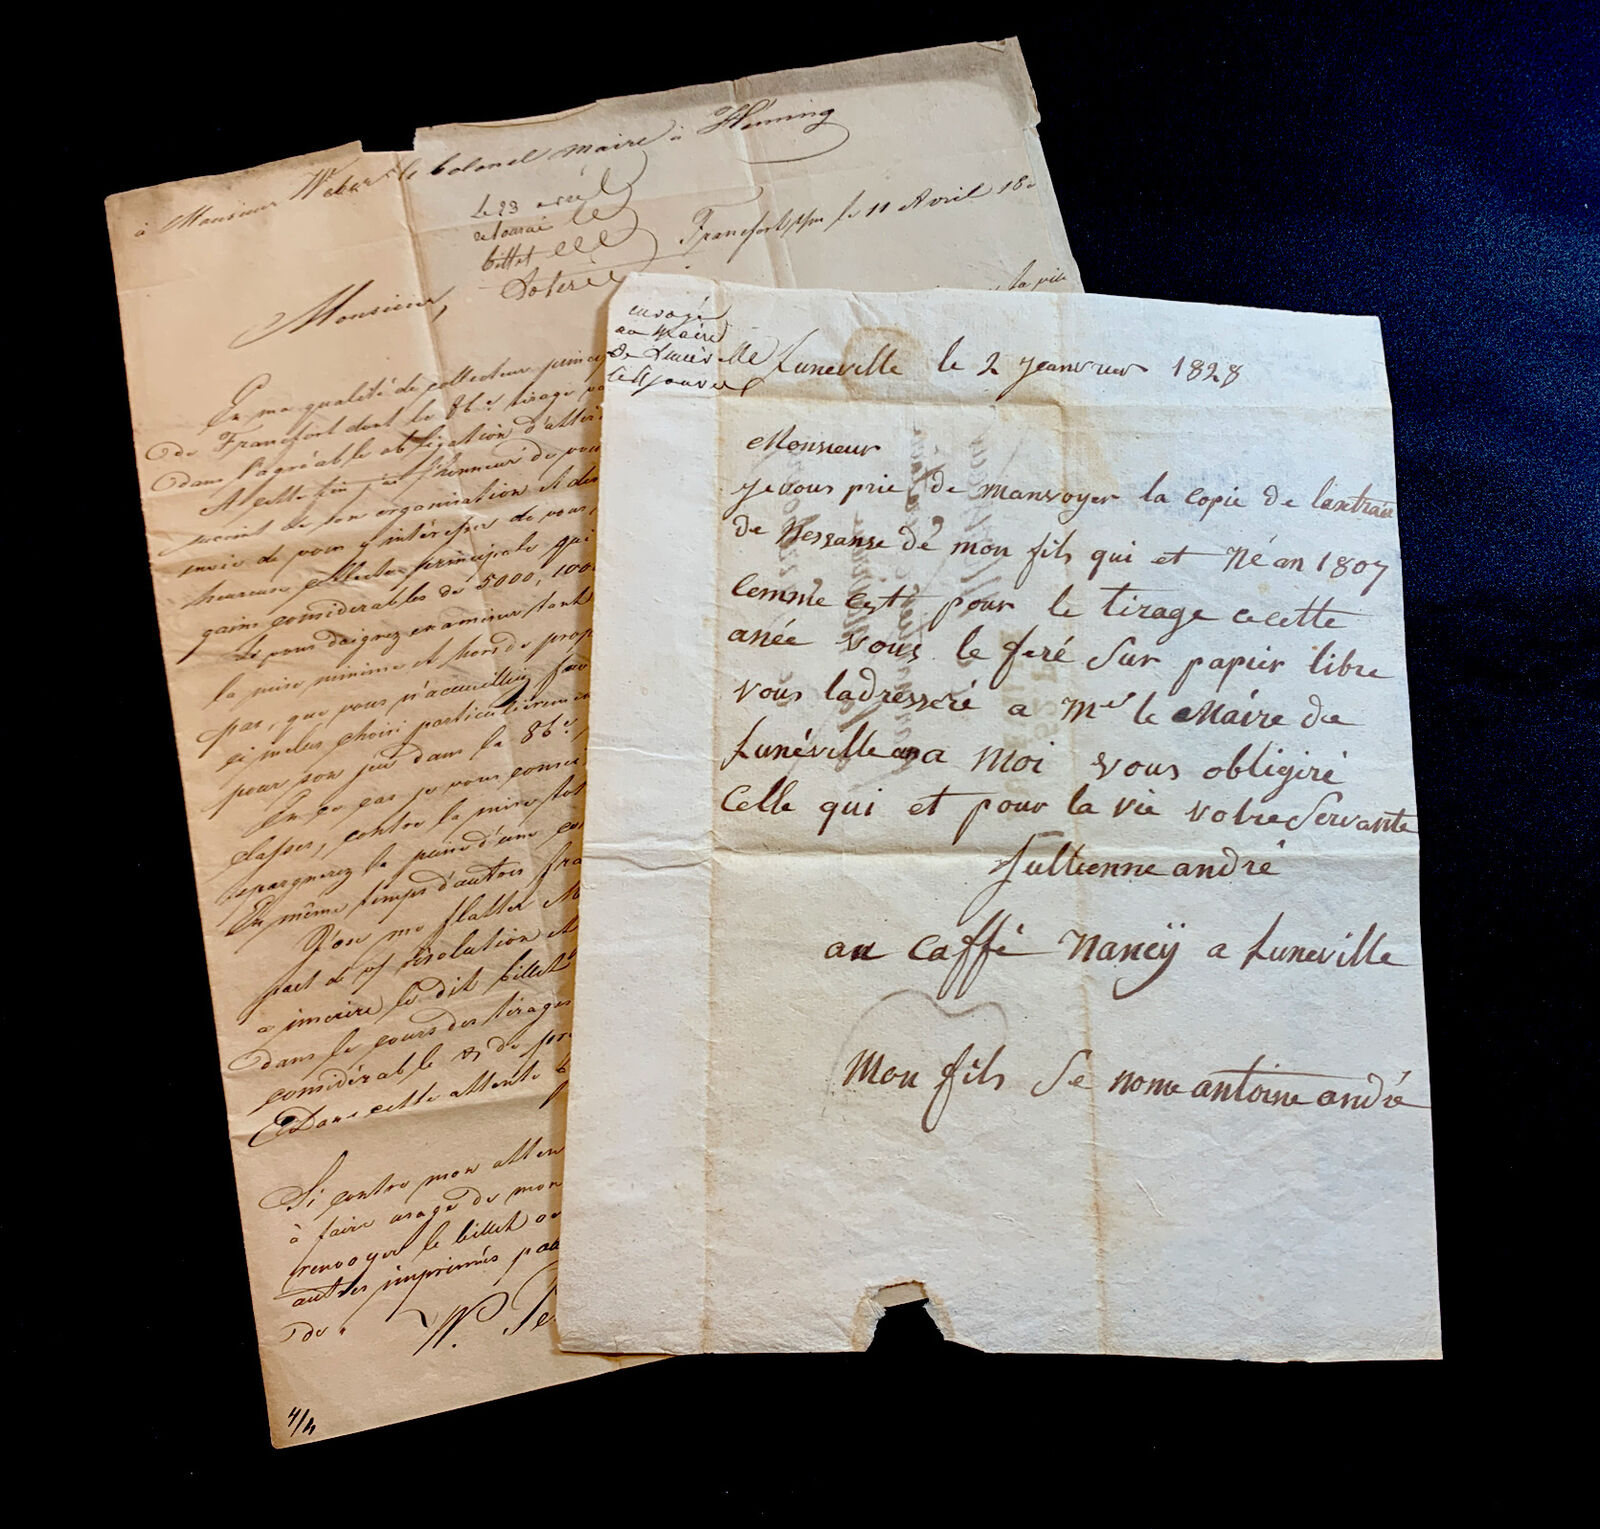 à Monsieur Weber le Colonel Maire à Héming
Le 23 avril
retourné le
billet
Francfort s/m le 11 Avril 18
Monsieur,
la ville
En ma qualité de collecteur princi
de Francfort dont le 86e. tirage
dans l'agréable obligation d'
A cette fin j'ai l'honneur de vous
de son organisation et des
envie de vous y intéresser de vous,
heureuse collecte principale qui
gains considérables de 5000, 100
Si vous daignez examiner tant
la mise minime et hors de prop
pas, que vous n'accueilliez fav
ci inclus choisi particulièremen
pour son jeu dans la 86e.,
En ce cas je vous
classes, contre la mise
epargnerez la peine d'une
En même temps d'autres fra
J'ose me flatter
part de résolution et
a inscrire le dit billet
dans le cours des tirages
considérable & de pro
Dans cette attente
Si contre mon atten
à faire usage de mon
renvoyer le billet
autres imprimés
de.
W.
4/4
envoyé
au Maire
de Lunéville
le janvier
Luneville le 2 jeanvier 1828
Monsieur
je vous prie de manvoyer la copie de laxtraie
de Nessanse de mon fils qui et Né an 1807
comme cest pour le tirage cecette
anée vous le feré sur papier libre
vous ladresseré a Mr le Maire de
Lunéville a Moi vous obligiré
Celle qui et pour la vie votre Servante
Jullienne andré
au Caffé Nancÿ a Luneville
Mon fils Se nome antoine andré